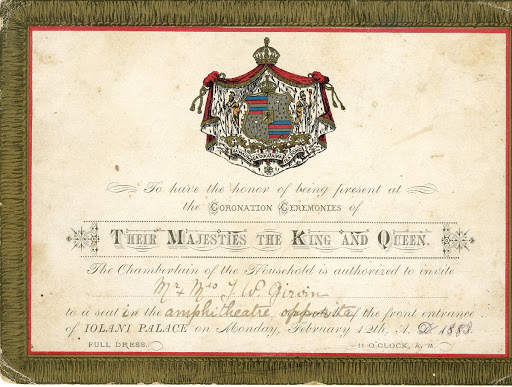 To have the honor of being present at
the CORONATION CEREMONIES of
THEIR MAJESTIES THE KING AND QUEEN.
The Chamberlain of the Household is authorized to invite
Mr & Mrs J. W. Girvin
to a seat in the amphitheatre opposite the front entrance
of IOLANI PALACE on Monday, February 12th, A. D. 1883.
FULL DRESS. 11 O'CLOCK, A. M.